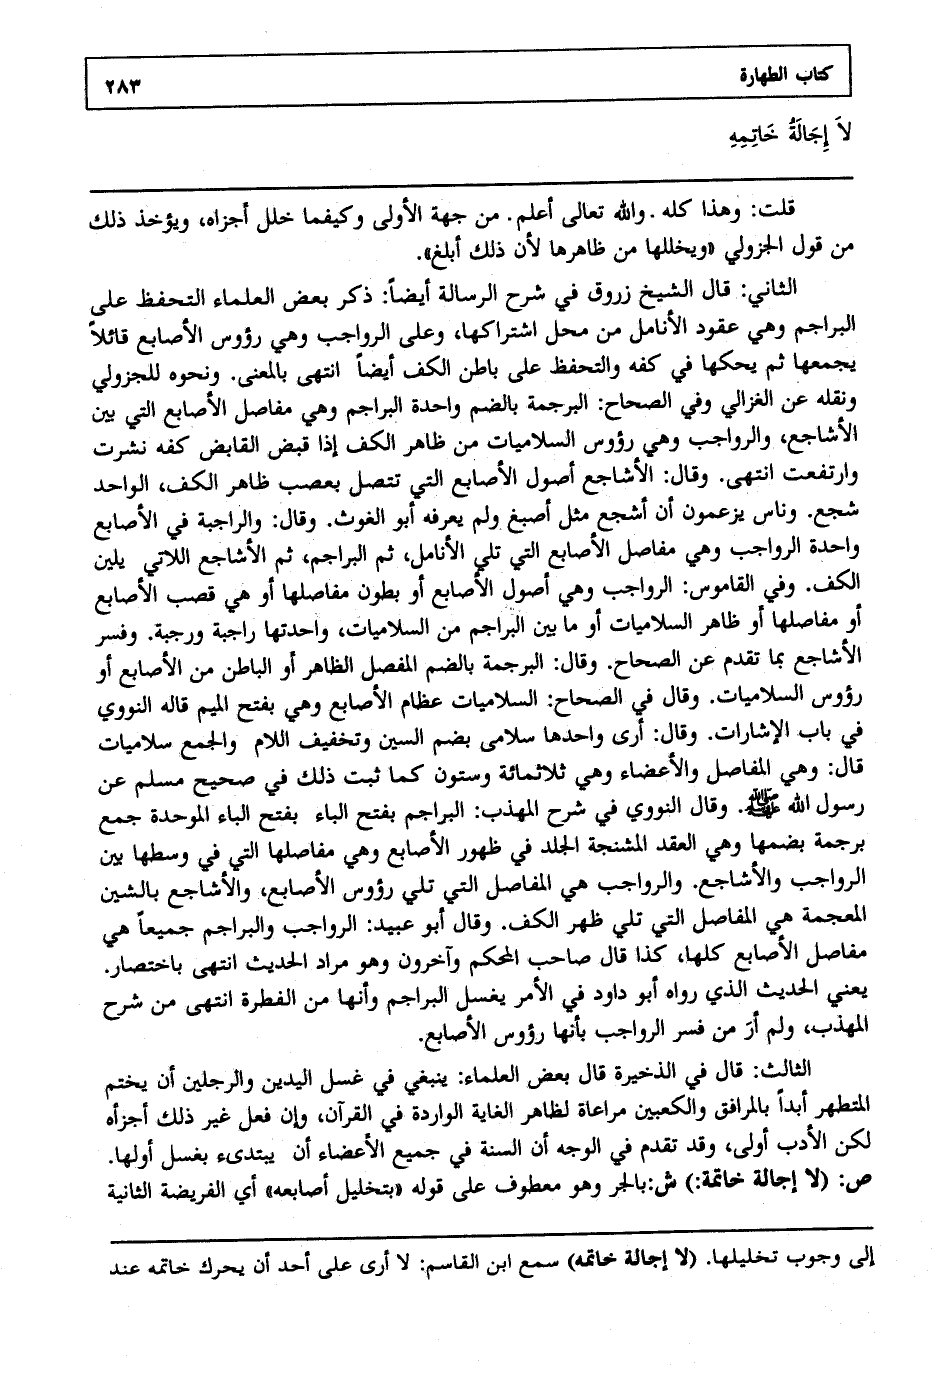 كتاب الطهارة ٢٨٣
لاَ إِجَالَةُ خَاتِمِهِ
قلت: وهذا كله . والله تعالى أعلم . من جهة الأولى وكيفما خلل أجزاه، ويؤخذ ذلك
من قول الجزولي «ويخللها من ظاهرها لأن ذلك أبلغ».
الثاني: قال الشيخ زروق في شرح الرسالة أيضاً: ذكر بعض العلماء التحفظ على
البراجم وهي عقود الأنامل من محل اشتراكها، وعلى الرواجب وهي رؤوس الأصابع قائلاً
يجمعها ثم يحكها في كفه والتحفظ على باطن الكف أيضاً انتهى بالمعنى. ونحوه للجزولي
ونقله عن الغزالي وفي الصحاح: البرجمة بالضم واحدة البراجم وهي مفاصل الأصابع التي بين
الأشاجع، والرواجب وهي رؤوس السلاميات من ظاهر الكف إذا قبض القابض كفه نشرت
وارتفعت انتهى. وقال: الأشاجع أصول الأصابع التي تتصل بعصب ظاهر الكف، الواحد
شجع. وناس يزعمون أن أشجع مثل أصبغ ولم يعرفه أبو الغوث. وقال: والراجبة في الأصابع
واحدة الرواجب وهي مفاصل الأصابع التي تلي الأنامل، ثم البراجم، ثم الأشاجع اللاتي يلين
الكف. وفي القاموس: الرواجب وهي أصول الأصابع أو بطون مفاصلها أو هي قصب الأصابع
أو مفاصلها أو ظاهر السلاميات أو ما بين البراجم من السلاميات، واحدتها راجبة ورجبة. وفسر
الأشاجع بما تقدم عن الصحاح. وقال: البرجمة بالضم المفصل الظاهر أو الباطن من الأصابع أو
رؤوس السلاميات. وقال في الصحاح: السلاميات عظام الأصابع وهي بفتح الميم قاله النووي
في باب الإشارات. وقال: أرى واحدها سلامى بضم السين وتخفيف اللام والجمع سلاميات
قال: وهي المفاصل والأعضاء وهي ثلاثمائة وستون كما ثبت ذلك في صحيح مسلم عن
رسول الله ﷺ. وقال النووي في شرح المهذب: البراجم بفتح الباء بفتح الباء الموحدة جمع
برجمة بضمها وهي العقد المشنجة الجلد في ظهور الأصابع وهي مفاصلها التي في وسطها بين
الرواجب والأشاجع. والرواجب هي المفاصل التي تلي رؤوس الأصابع، والأشاجع بالشين
المعجمة هي المفاصل التي تلي ظهر الكف. وقال أبو عبيد: الرواجب والبراجم جميعاً هي
مفاصل الأصابع كلها، كذا قال صاحب المحكم وآخرون وهو مراد الحديث انتهى باختصار.
يعني الحديث الذي رواه أبو داود في الأمر يغسل البراجم وأنها من الفطرة انتهى من شرح
المهذب، ولم أرَ من فسر الرواجب بأنها رؤوس الأصابع.
الثالث: قال في الذخيرة قال بعض العلماء: ينبغي في غسل اليدين والرجلين أن يختم
المتطهر أبداً بالمرافق والكعبين مراعاة لظاهر الغاية الواردة في القرآن، وإن فعل غير ذلك أجزأه
لكن الأدب أولى، وقد تقدم في الوجه أن السنة في جميع الأعضاء أن يبتدىء بغسل أولها.
ص: (لا إجالة خاتمة:) ش:بالجر وهو معطوف على قوله «بتخليل أصابعه» أي الفريضة الثانية
إلى وجوب تخليلها. (لا إجالة خاتمه) سمع ابن القاسم: لا أرى على أحد أن يحرك خاتمه عند